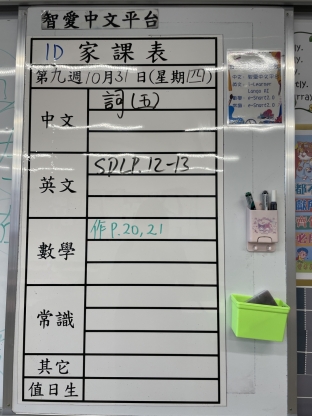 智愛中文平台
1D 家課表
第九週10月31日(星期四)
中文 詞(五)
英文 SD1P.12-13
數學 作P.20,21
常識
其它
值日生